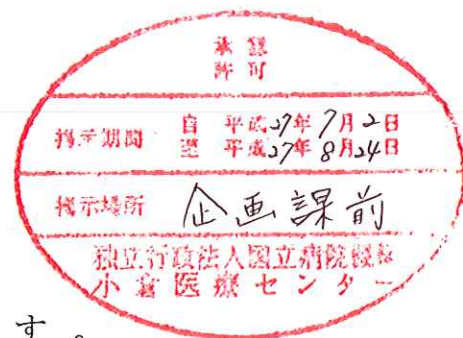 承認
許可
掲示期間
自 平成27年7月2日
至 平成27年8月24日
掲示場所 企画課前
独立行政法人国立病院機構
小倉医療センター
す。